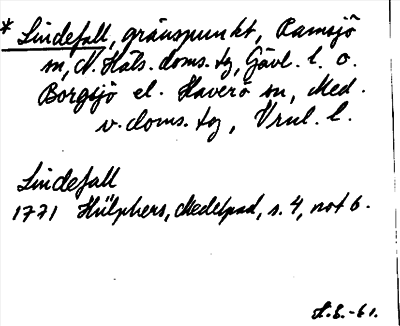 * Lindefall, gränspunkt, Ramsjö
sn, N. Häls. doms. tg, Gävl. l. o.
Borgsjö el. Haverö sn, Med.
v. doms. tg, Vrnl. l.
Lindefall
1771 Hülphers, Medelpad, s. 4, not 6.
S.E. -61.